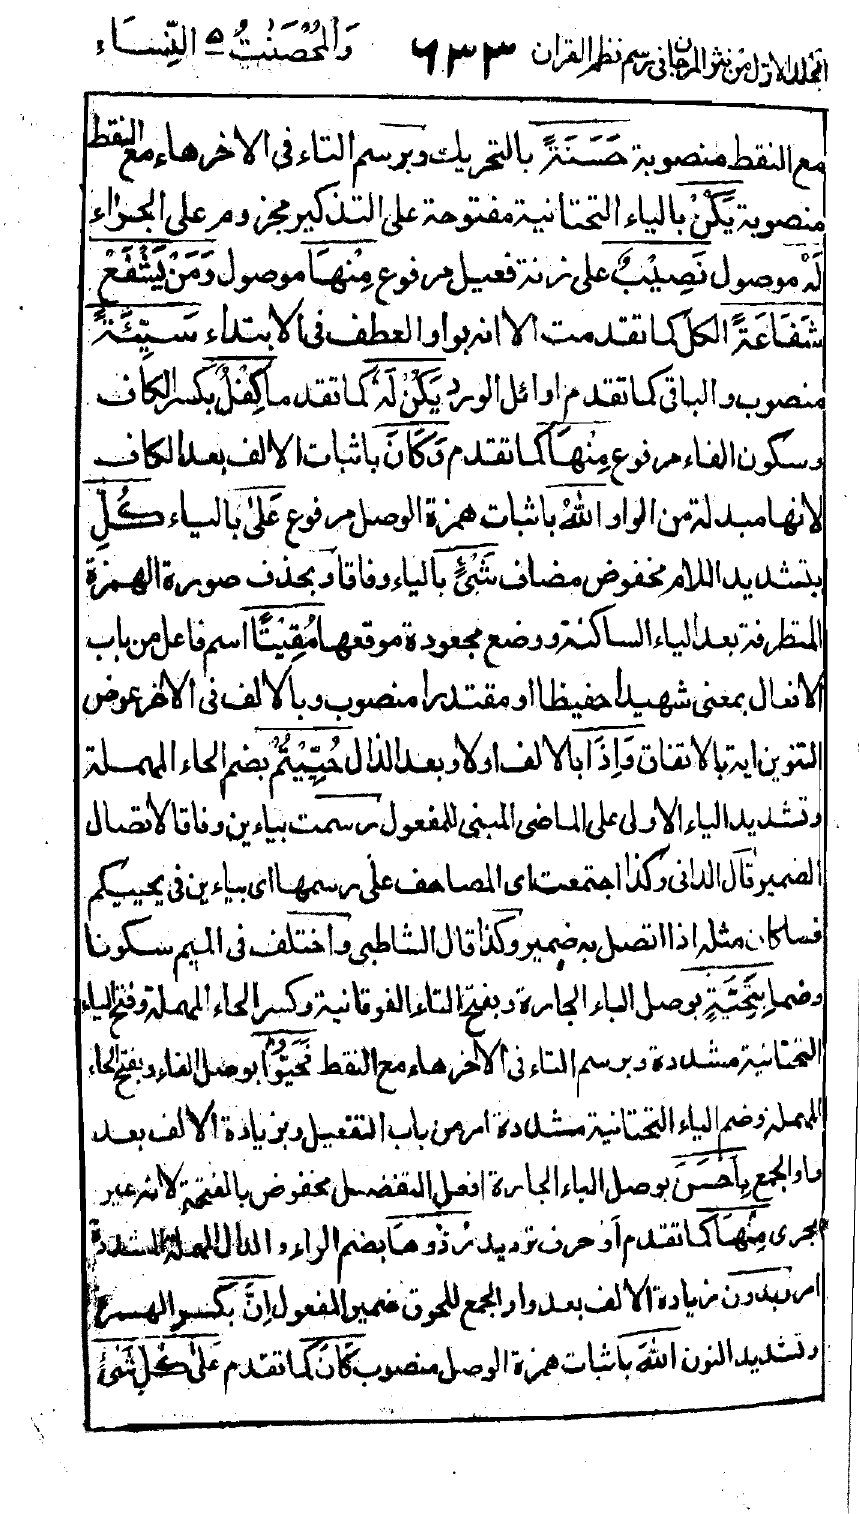 المجلد الاول من نثر المرجان فى رسم نظم القران ٦٣٣ والمحصنت ٥ النساء
مع النقط منصوبة حَسَنَةً بالتحريك وبرسم التاء فى الاخرهاء مع النقط
منصوبة يَكُنْ بالياء التحتانية مفتوحة على التذكير مجزوم على الجزاء
لَهُ موصول نَصِيْبٌ على زنة فعيل مرفوع مِنْهَا موصول وَمَنْ يَشْفَعْ
شَفَاعَةً الكل كما تقدمت الا انه بواو العطف فى الابتداء سَيِّئَةً
منصوب والباقى كما تقدم اوائل الورد يَكُنْ لَهُ كما تقدما كِفْلٌ بكسر الكاف
وسكون الفاء مرفوع مِنْهَا كما تقدم وَكَانَ باثبات الالف بعد الكاف
لانها مبدلة من الواو اللهُ باثبات همزة الوصل مرفوع عَلىٰ بالياء كُلِّ
بتشديد اللام مخفوض مضاف شَىْءٍ بالياء وفاقا وبحذف صورة الهمزة
المتطرفة بعد الياء الساكنة ووضع مجعودة موقعها مُقِيْتًا اسم فاعل من باب
الافعال بمعنى شهيدا حفيظا او مقتدرا منصوب وبالالف فى الاخر عوض
التنوين اية بالاتفاق وَاِذَا بالالف اولا وبعد الذال حُيِّيْتُمْ بضم الحاء المهملة
وتشديد الياء الاولى على الماضى المبنى للمفعول رسمت بياءين وفاقا لاتصال
الضمير قال الدانى وكذا اجتمعت اى المصاحف على رسمها اى بياءين فى يحييكم
فما كان مثله اذا اتصل به ضمير وكذا قال الشاطبى واختلف فى الميم سكونا
وضما بِتَحِيَّةٍ بوصل الباء الجارة وبفتح التاء الفوقانية وكسر الحاء المهملة وفتح الياء
التحتانية مشددة وبرسم التاء فى الاخرهاء مع النقط فَحَيُّوْا بوصل الفاء وبفتح الحاء
المهملة وضم الياء التحتانية مشددة امر من باب التفعيل وبزيادة الالف بعد
واو الجمع بِاَحْسَنَ بوصل الباء الجارة افعل التفضيل مخفوض بالفتحة لانه غير
مجرى مِنْهَا كما تقدم اَوْ حرف ترديد رُدُّوْهَا بضم الراء والدال المهملة المشددة
امر وبدون زيادة الالف بعد واو الجمع للحوق ضمير المفعول اِنَّ بكسر الهمزة
وتشديد النون اللهَ باثبات همزة الوصل منصوب كَانَ كما تقدم عَلىٰ كُلِّ شَىْءٍ